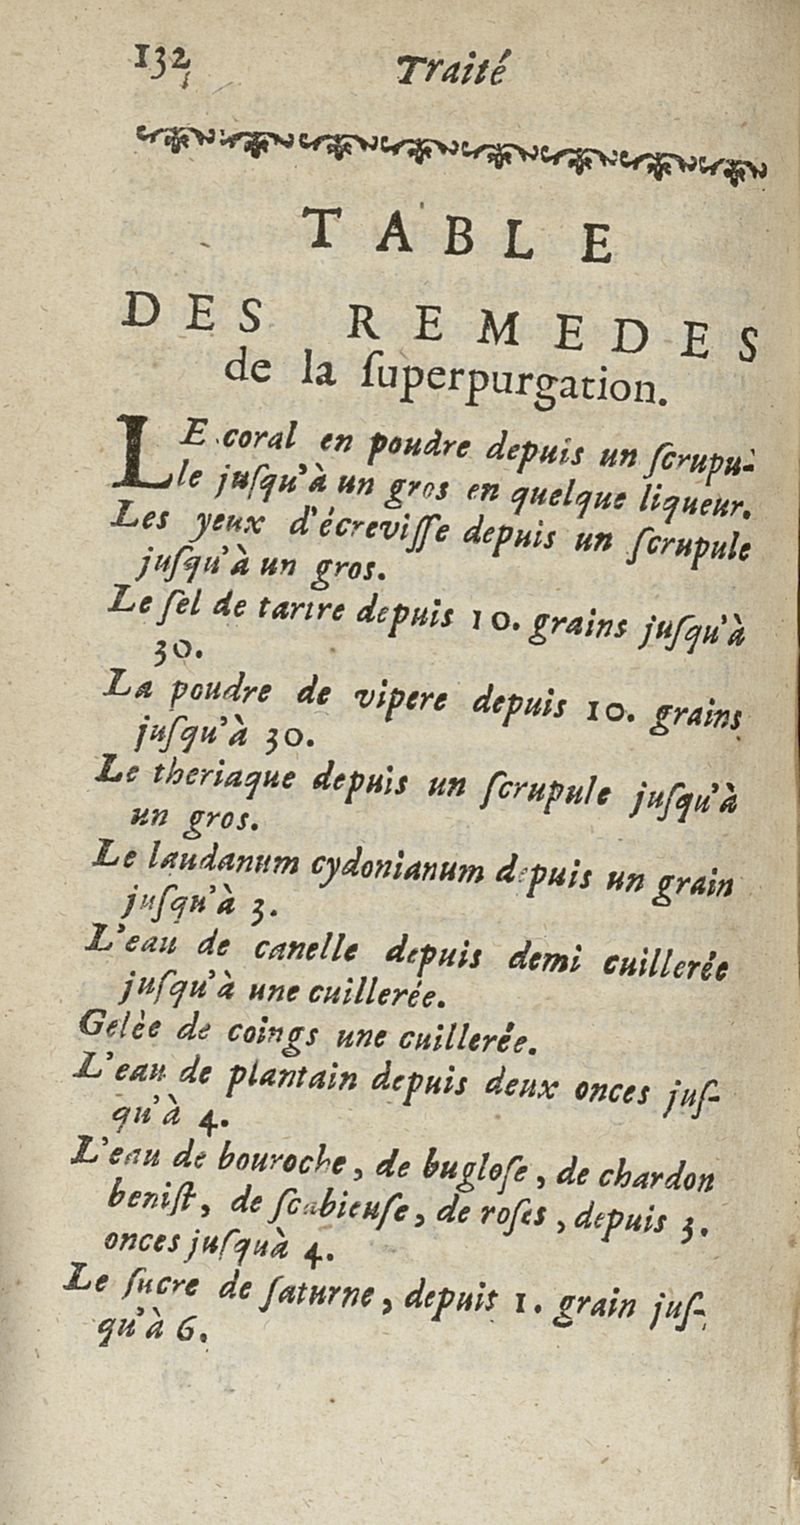 132 Traité
TABLE
DES REMEDES
de la ſuperpurgation.
LE coral en poudre depuis un ſcrupu-
le juſqu'à un gros en quelque liqueur.
Les yeux d'écreviſſe depuis un ſcrupule
juſqu'à un gros.
Le ſel de tartre depuis 10. grains juſqu'à
30.
La poudre de vipere depuis 10. grains
juſqu'à 30.
Le theriaque depuis un ſcrupule juſqu'à
un gros.
Le laudanum cydonianum depuis un grain
juſqu'à 3.
L'eau de canelle depuis demi cuillerée
juſqu'à une cuillerée.
Gelèe de coings une cuillerée.
L'eau de plantain depuis deux onces juſ-
qu'à 4.
L'eau de bouroche, de bugloſe, de chardon
beniſt, de ſcabieuſe, de roſes, depuis 3.
onces juſquà 4.
Le ſucre de ſaturne, depuis 1. grain juſ-
qu'à 6.